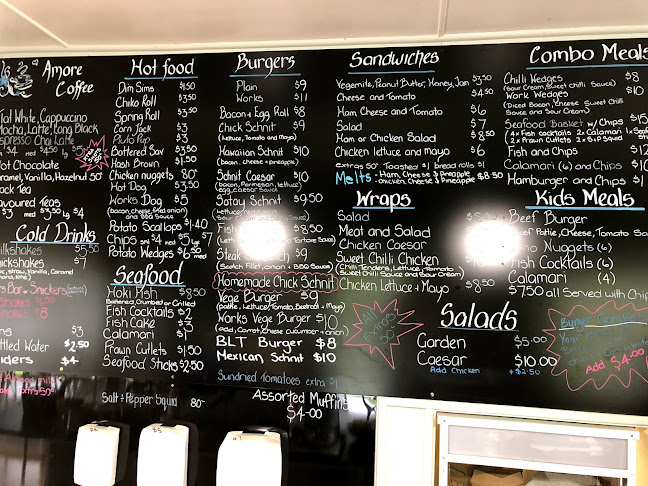 Amore
Coffee
Flat White, Cappuccino
Mocha, Latte, Long Black
Espresso Chai Latte
Hot Chocolate
Caramel, Vanilla, Hazelnut 50
Black Tea
Flavoured Teas
$3 med $3.50 lg $4
Cold Drinks
Milkshakes $5.50
Thickshakes $7
Bottled Water $2.50
Hot food
Dim Sims
Chiko Roll $3.50
Spring Roll $3.50
Corn Jack $3
Pluto Pup $3
Battered Sav $3.50
Hash Brown $1.50
Chicken nuggets 80
Hot Dog $3.50
Works Dog $5
(bacon, cheese, fried onion)
and BBQ Sauce
Potato Scallops $1.40
Chips sml $4 med $5
Potato Wedges
Seafood
Hoki Fish $8.50
Battered, Crumbed or Grilled
Fish Cocktails $2
Fish Cake $3
Calamari $1
Prawn Cutlets $1.50
Seafood Sticks $2.50
Salt & Pepper Squid 80
Burgers
Plain $9
Works $11
Bacon & Egg Roll $8
Chick Schnit $9
(lettuce, Tomato and Mayo)
Hawaiian Schnit $10
(bacon, cheese & pineapple)
Schnit Caesar $10
(bacon, Parmesan, lettuce)
egg, Caesar Sauce
Satay Schnit $9.50
Fish
Steak
(Scotch Fillet, onion & BBQ Sauce)
Homemade Chick Schnitzel
Vege Burger $9
(pattie, lettuce, Tomato, Beetroot & Mayo)
Works Vege Burger $10
(add, Carrot, Cheese, cucumber & onion)
BLT Burger $8
Mexican Schnit $10
Sundried Tomatoes extra $1
Assorted Muffins
$4-00
Sandwiches
Vegemite, Peanut Butter, Honey, Jam $3.50
Cheese and Tomato $4.50
Ham Cheese and Tomato $6
Salad $7
Ham or Chicken Salad $8.50
Chicken lettuce and mayo $6
extras 50¢ Toasted $1 bread rolls $1
Melts: Ham, Cheese & Pineapple
Chicken, Cheese & Pineapple $8.50
Wraps
Salad
Meat and Salad
Chicken Caesar
Sweet Chilli Chicken
(Chilli Tenders, Lettuce, Tomato
Sweet Chilli Sauce and Sour Cream)
Chicken Lettuce & Mayo $8.50
All
Extras
Salads
Garden $5.00
Caesar $10.00
Add Chicken + $2.50
Combo Meals
Chilli Wedges $8
(Sour Cream, Sweet Chilli Sauce)
Works Wedges $10
(Diced Bacon, Cheese, Sweet Chilli
Sauce and Sour Cream)
Seafood Basket w/Chips $15
Fish and Chips $12
Calamari (6) and Chips
Hamburger and Chips
Kids Meals
Beef Burger
Nuggets (6)
Fish Cocktails (6)
Calamari (4)
$7.50 all Served with Chips
Add $4.00